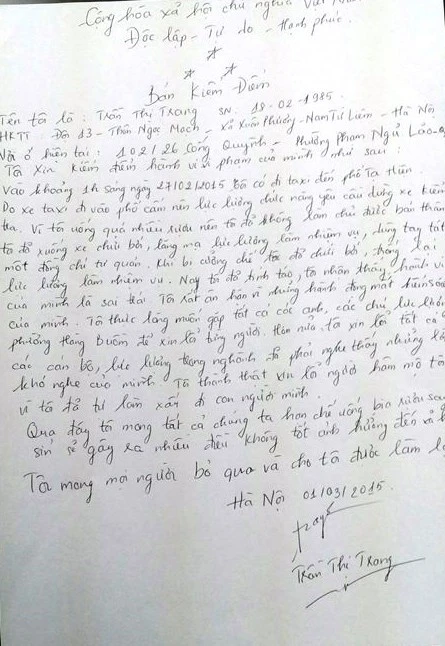 Cộng hòa xã hội chủ nghĩa Việt
Độc lập - Tự do - Hạnh phúc.
Bản Kiểm Điểm
Tên tôi là : Trần Thị Trang SN 18-02-1985.
HKTT: Đội 13 - Thôn Ngọc Mạch - Xã Xuân Phương - Nam Từ Liêm - Hà Nội
Nơi ở hiện tại : 102/26 Cống Quỳnh - Phường Phạm Ngũ Lão -
Tôi Xin kiểm điểm hành vi vi phạm của mình như sau :
Vào khoảng 1h sáng ngày 27/02/2015 tôi có đi taxi đến phố Tạ Hiện.
Do xe taxi đi vào phố cấm nên lực lượng chức năng yêu cầu dừng xe kiểm
tra. Vì tôi uống quá nhiều rượu nên tôi đã không làm chủ được bản thân
tôi đã xuống xe chửi bới, lăng mạ lực lượng làm nhiệm vụ, dùng tay tát
một đồng chí tự quản. Khi bị cưỡng chế tôi đã chửi bới, chống lại
lực lượng làm nhiệm vụ. Nay tôi đã tỉnh táo, tôi nhận thấy hành vi
của mình là sai trái. Tôi rất ân hận vì những hành động mất kiểm soát
của mình. Tôi thực lòng muốn gặp tất cả các anh, các chú lực lượng
phường Hàng Buồm để xin lỗi từng người. Hơn nữa, tôi xin lỗi tất cả
các cán bộ, lực lượng trong nghành đã phải nghe thấy những lời
khó nghe của mình. Tôi thành thật xin lỗi người hâm mộ tôi
vì tôi đã tự làm xấu đi con người mình.
Qua đây tôi mong tất cả chúng ta hạn chế uống bia rượu say
sỉn sẽ gây ra nhiều điều không tốt ảnh hưởng đến xã hội
Tôi mong mọi người bỏ qua và cho tôi được làm lại
Hà Nội 01/03/2015.
Trần Thị Trang